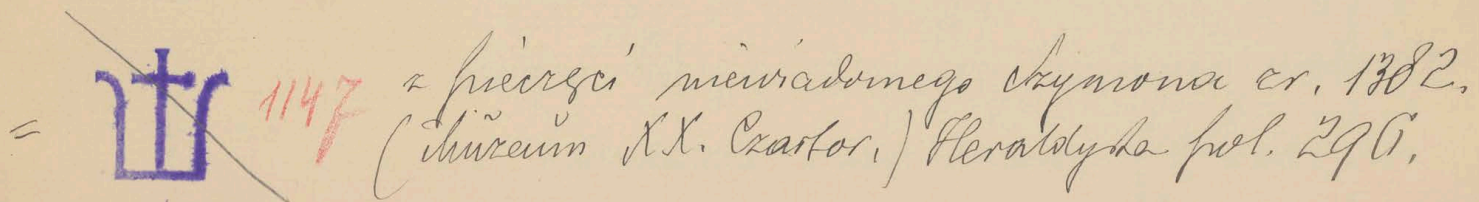 = 1147 z pieczęci niewiadomego Szymona ar. 1382.
(Muzeum XX. Czartor.) Heraldyka pol. 296.